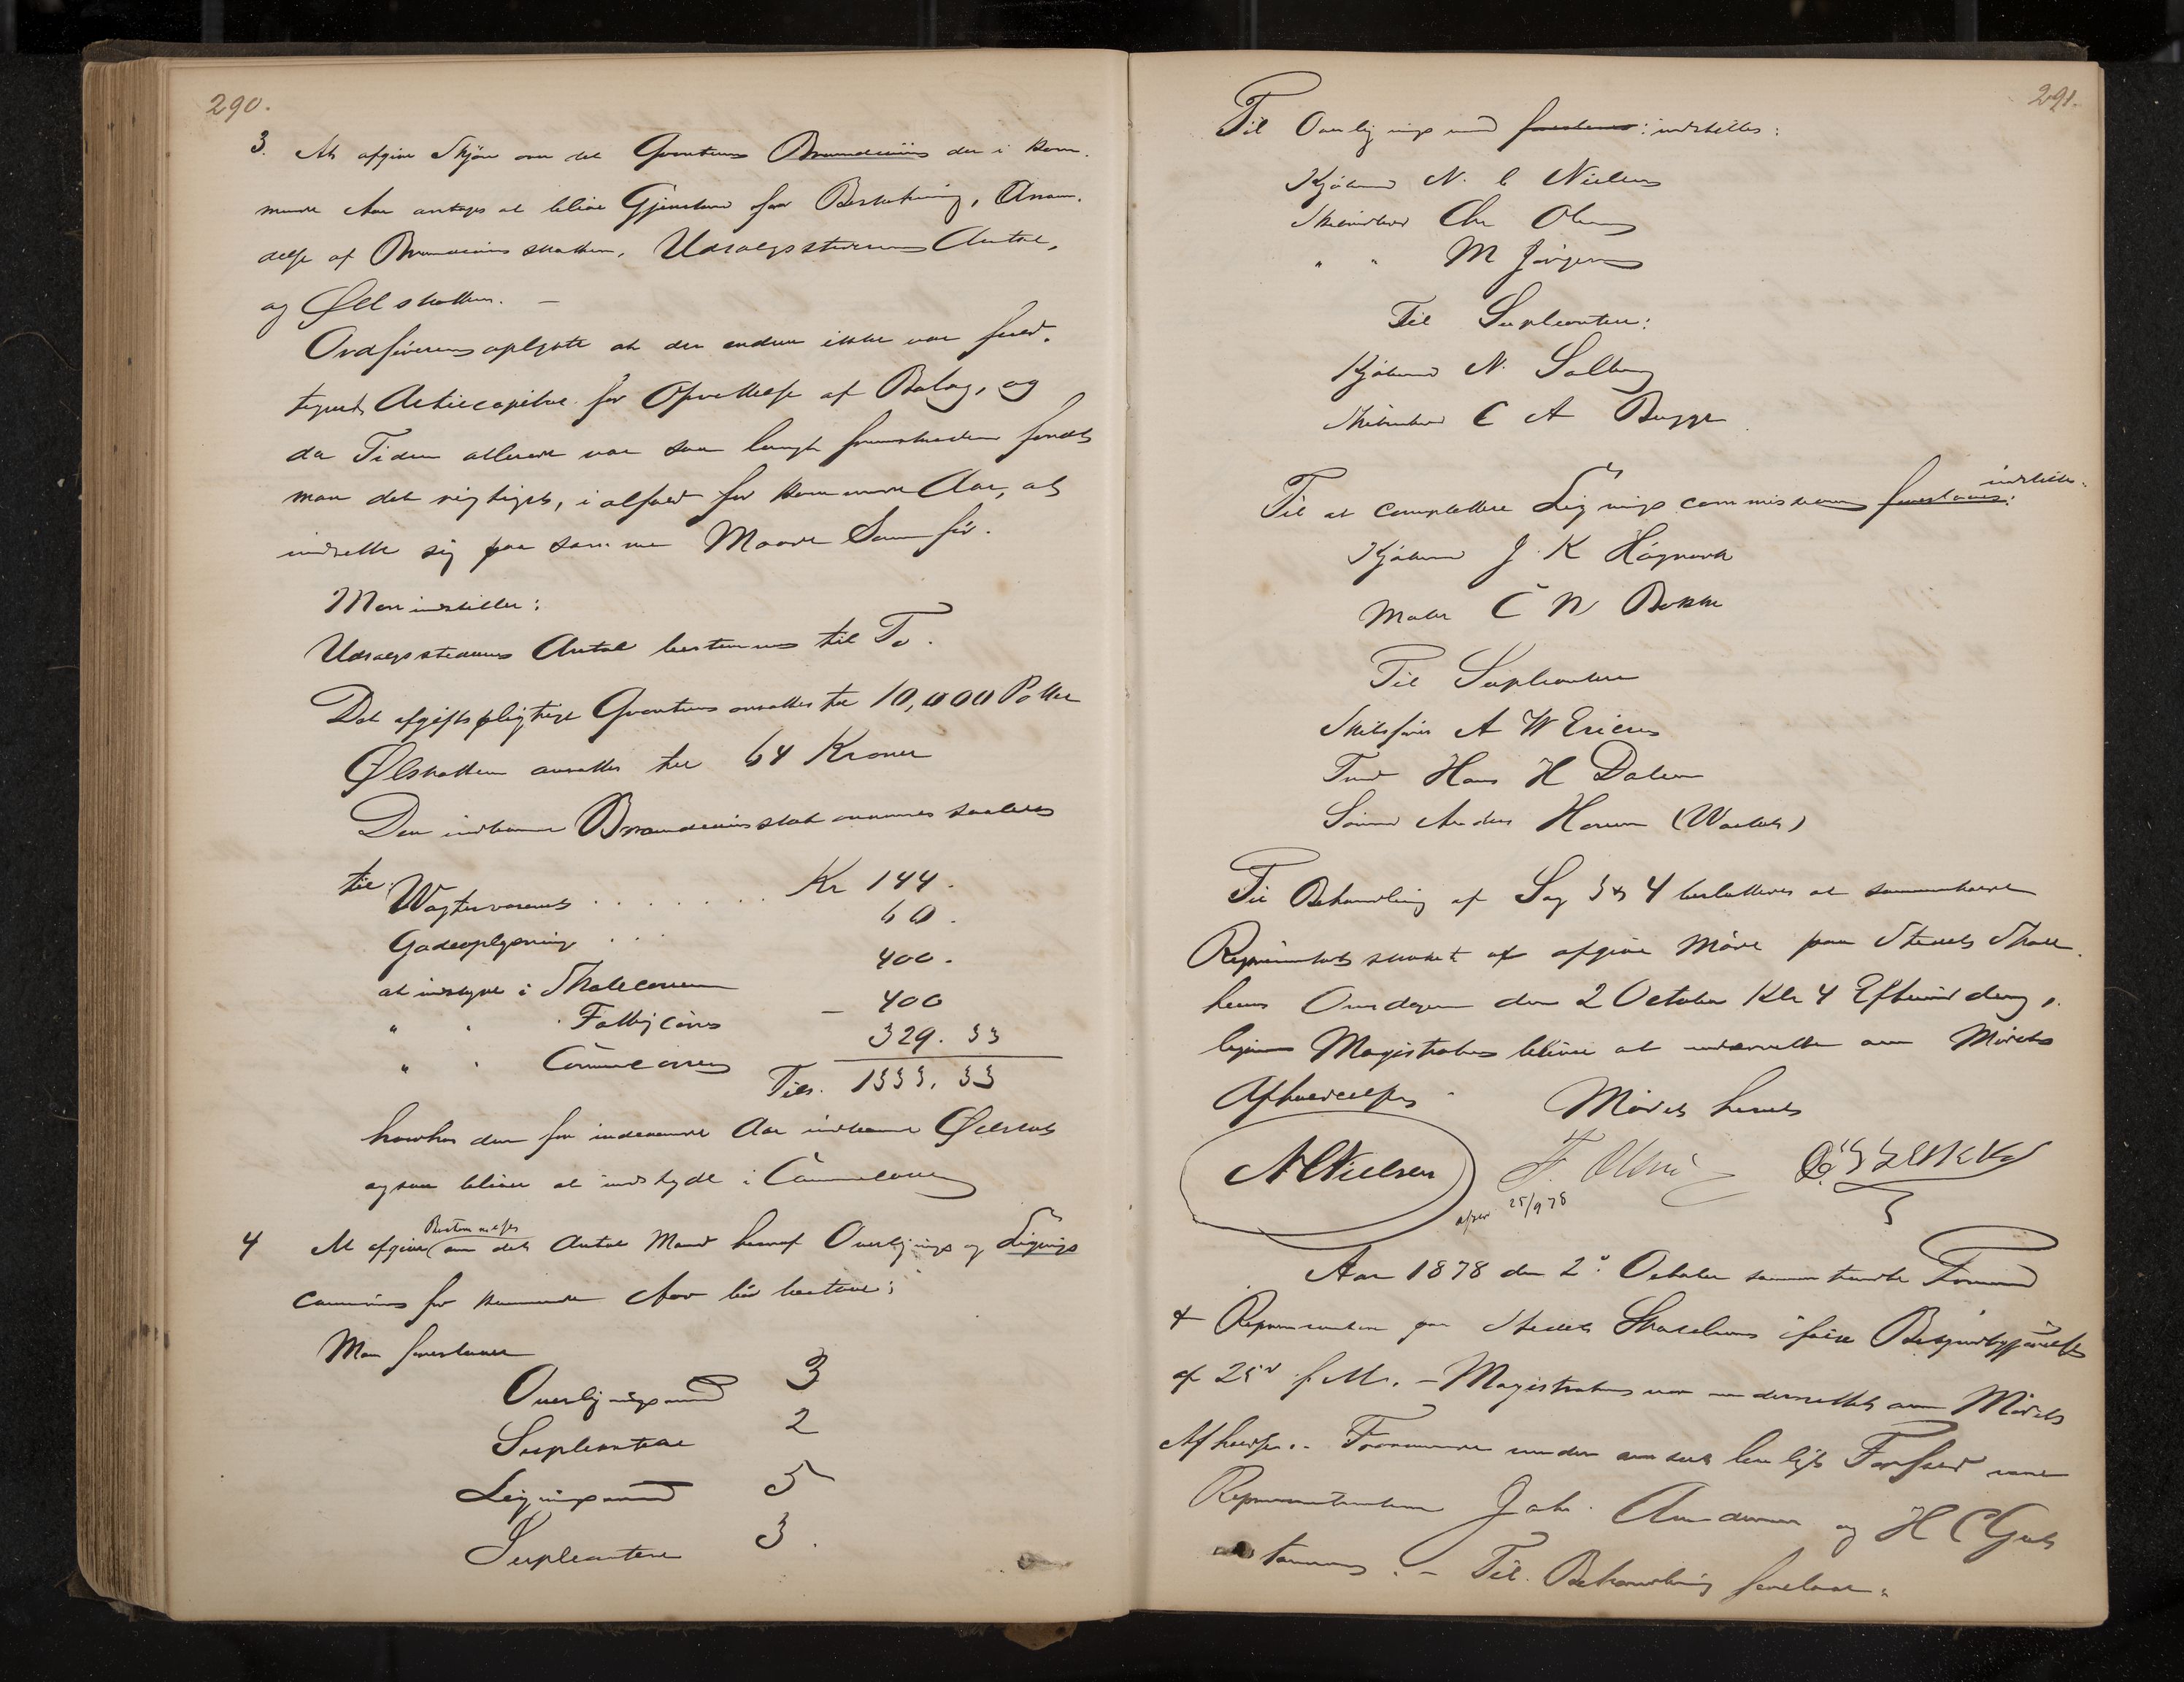 290.
3. At afgive Skjøn om det Qvantum Brændeviin der i kom-
mende Aar antages at blive Gjenstand for Beskatning, Anven-
delse af Brændeviinsskatten, Udsalgsstedernes Antal,
og Ølskatten. —
Ordføreren oplyste at der endnu ikke var fuld-
tegnet Actiecapital for Oprettelse af Bolag, og
da Tiden allerede var saa langt fremskreden fandt
man det rigtigst, i alfald for kommende Aar, at
indrette sig paa samme Maade som før.
Man indstiller:
Udsalgsstedernes Antal bestemmes til To.
Det afgiftspligtige Qvantum ansættes til 10,000 Potter
Ølskatten ansættes til 64 Kroner
Den indkomne Brændevinsskat anvendes saaledes
til: Vægtervæsenet . . . . . . . Kr 144.
Gadeoplysning . . . 60.
at indskyde i Skolecassen 400.
" " Fattigcassen — 400
" " Communecassen 329. 33
Tils. 1333. 33
hvorhos den for indeværende Aar indkomne Ølskat
ogsaa bliver at indskyde i Communecassen
4 At afgive Bestemmelse om det Antal Mænd hvoraf Overligning og Lignings
commission for kommende Aar bør bestaae;
Man foreslaaer
Overligningsmænd 3
Supleantere 2
Ligningsmænd 5
Supleantere 3.
291.
Til Overligningsmænd foreslaaes: indstilles:
Kjøbmand N. C Nielsen
Skibsreder Chr Olsen
" " M Jørgensen
Til Supleanter:
Kjøbmand N. Solberg
Skibsreder C A Bugge
Til at complettere Ligningscommissionen foreslaaes: indstilles:
Kjøbmand J. K Høgvard
Maler C N Bakke
Til Supleantere
Skibsfører A W Ericsen
Hans H Dalen
Anders Hansen
Til Behandling af Sag 3 & 4 besluttedes at sammenkalde
Repræsentantskabet at afgive Møde paa Stedets Skole-
huus Onsdagen den 2 October Kl 4 Eftermiddag,
ligesom Magistraten bliver at underrette om Mødets
Afholdelse. Mødet hævet
N C Nielsen F. Olsen
25/9 78
Aar 1878 den 2. October sammentraadte Formænd
& Repræsentanter paa Stedets Skolehuus ifølge Bekjendtgjørelse
af 25 f. M. — Magistraten var underrettet om Mødets
Afholdelse. — Fraværende uden anmeldt lovligt Forfald vare
Repræsentanterne Joh. Andersen og H C
— Til Behandling forelaae: